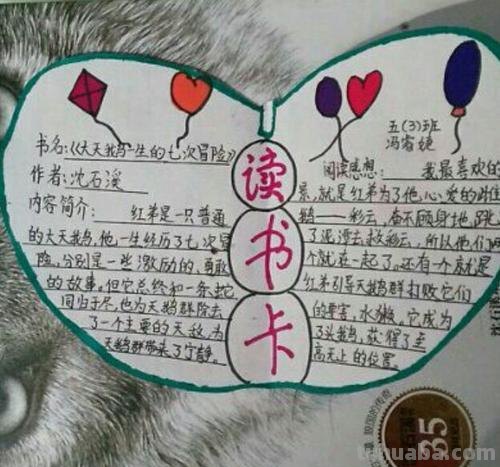 书名:《大天鹅一生的七次冒险》
作者:沈石溪
内容简介: 红弟是一只普通
的大天鹅,他一生经历了七次冒
险,分别是一些激励的、勇敢
的故事,但它总终和一条蛇
同归于尽,也为天鹅群除去
了一个主要的天敌,为
天鹅群带来了宁静。
读
书
卡
五(3)班
冯睿婕
阅读感想: 我最喜欢的
景,就是红弟为了他心爱的雌
鹅——彩云,奋不顾身地跳
了泥潭去救彩云,所以他们两
个就在一起了。还有一个就是
红弟引导天鹅群打败它们
的要害,水獭,它成为
了头鹅,获得了至
高无上的位置。
35
tuhuaba.com